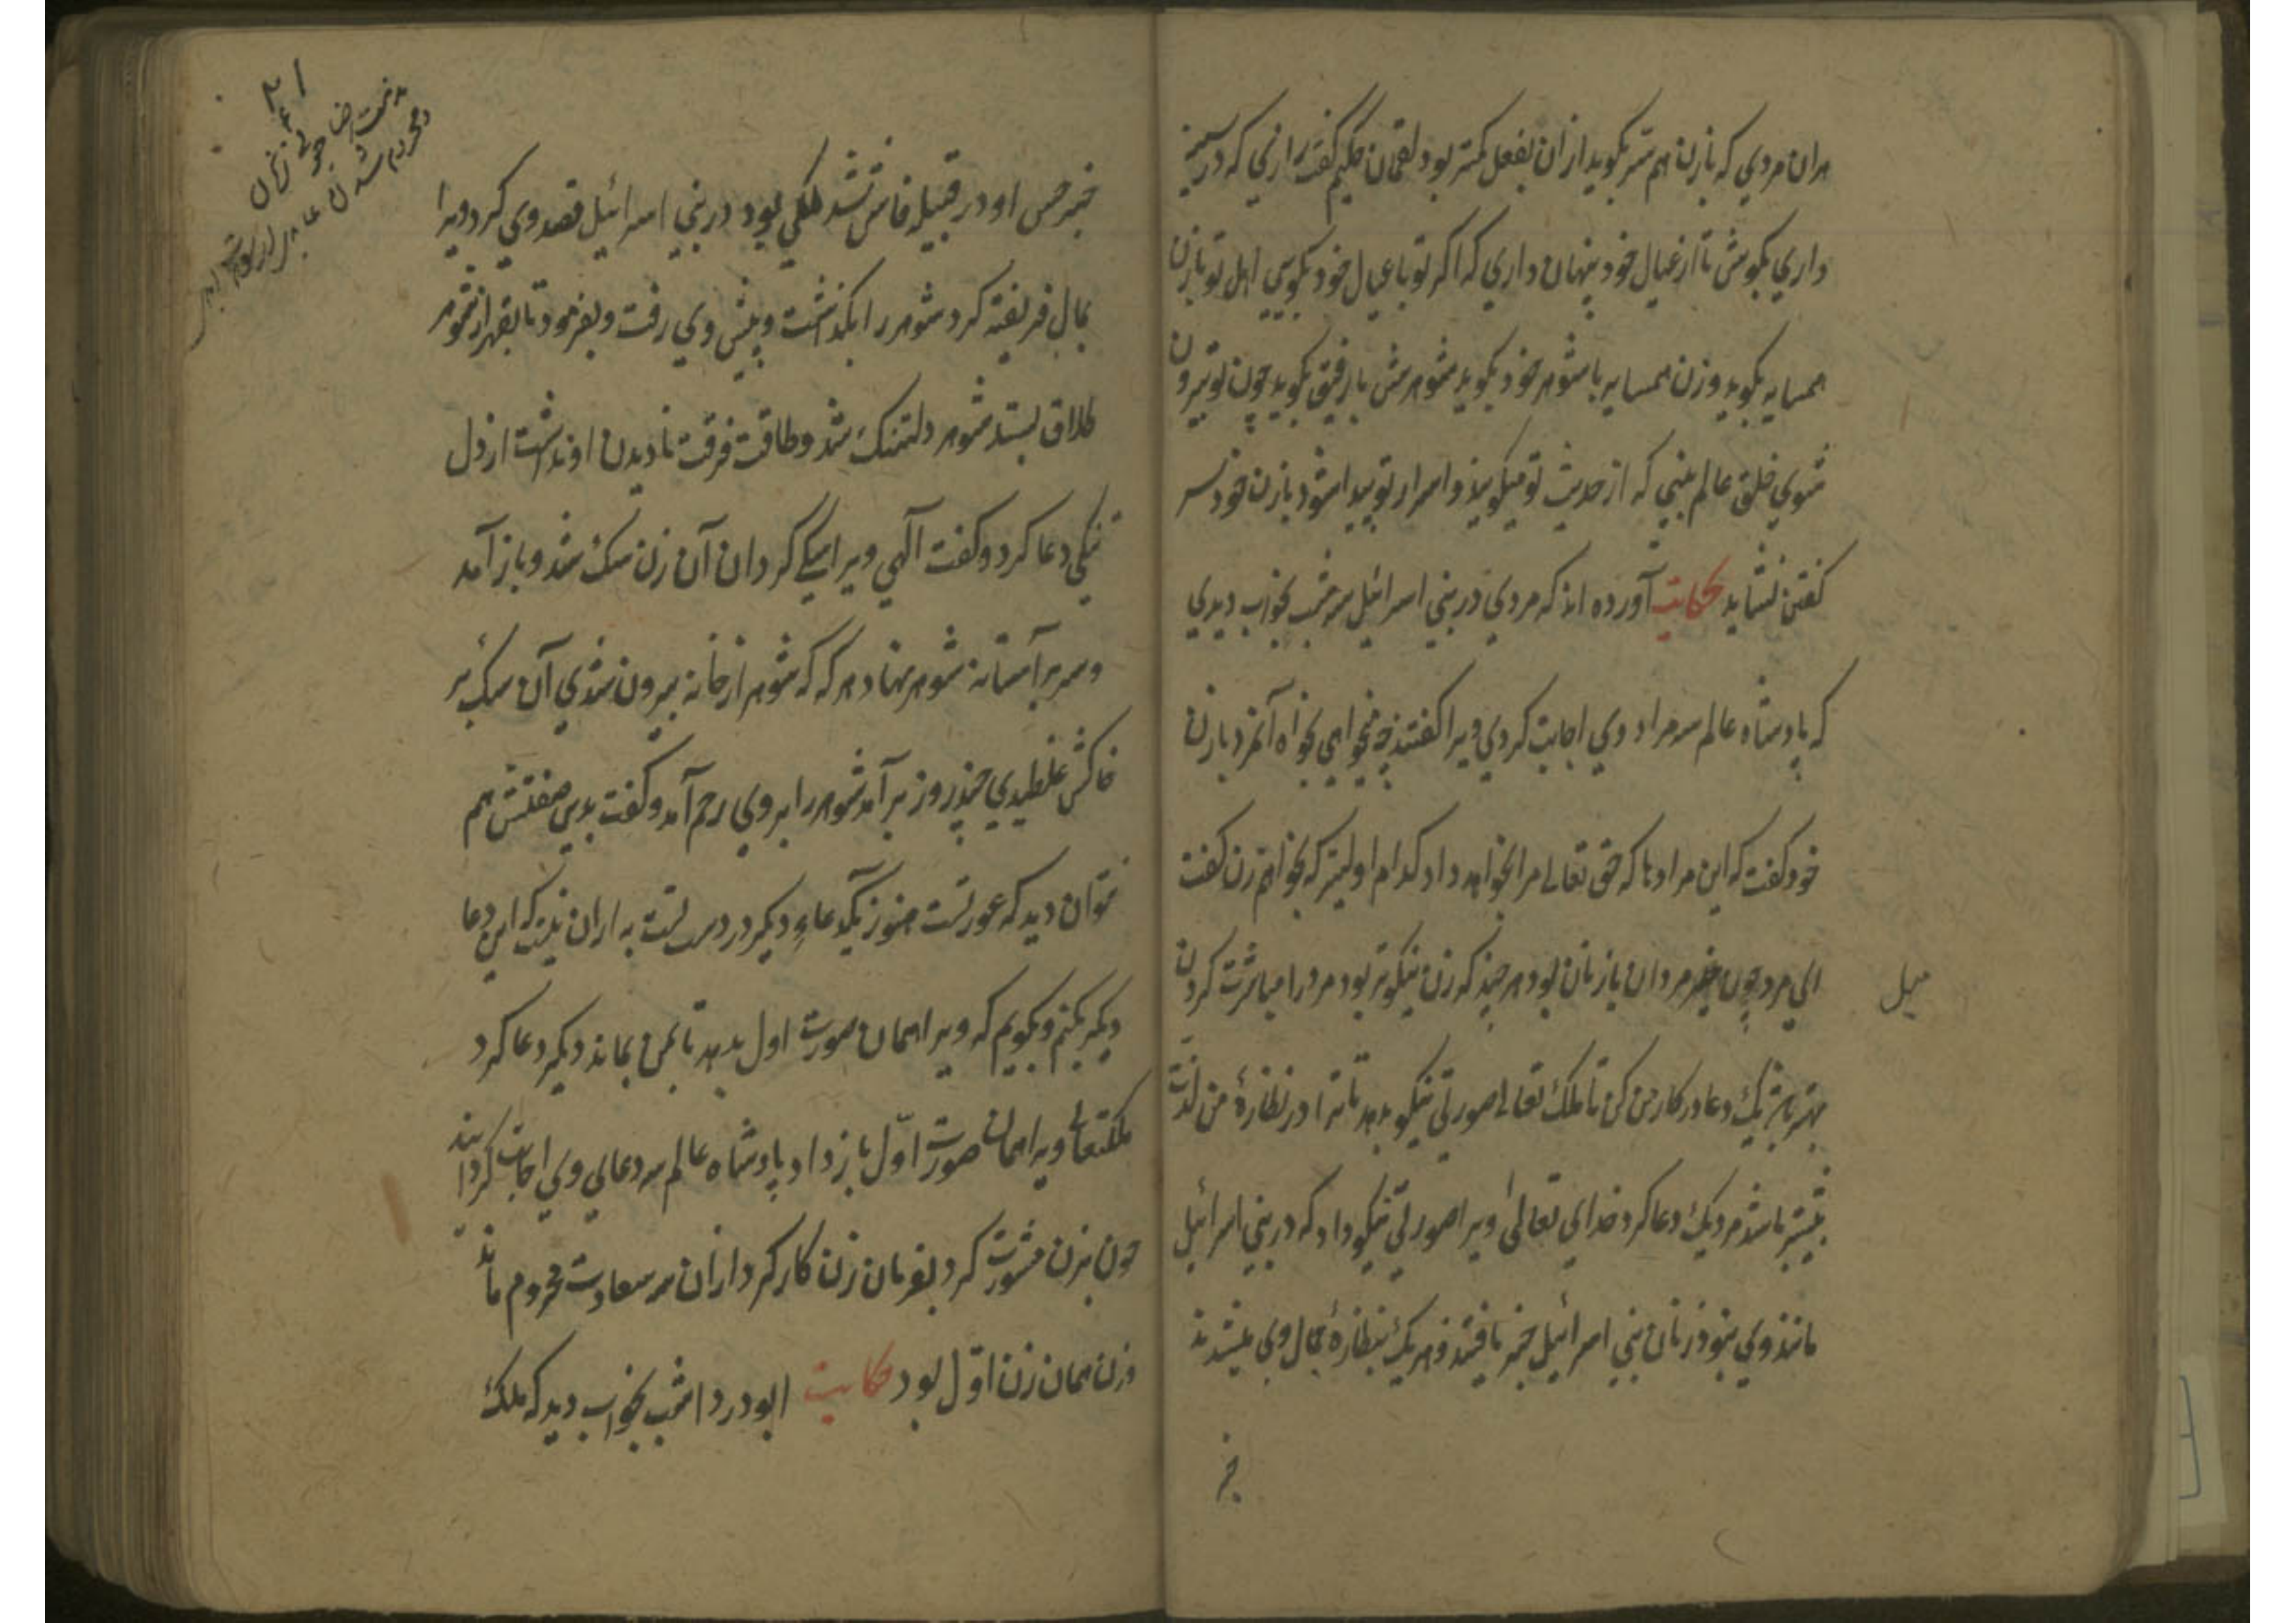 هران مردي که بازن هم سر بگوید ازان بفعل کمتر بود لقمان حکیم گفت رازي که در سینه
داري بکوش تا از عیال خود پنهان داري که اگر تو با عیال خود بگویي اهل تو بازن
همسایه بگوید و زن همسایه با شوهر خود بگوید شوهرش با رفیق بگوید چون تو بیرون
شوي خلق عالم بیني که از حدیث تو میگویند و اسرار تو پیدا شود بازن خود سر
گفتن نشاید حکایت آورده اند که مردي در بني اسرائیل سه شب بخواب دیدي
که پادشاه عالم سه مراد وي اجابت کردي ویرا گفتند چه میخواهي بخواه آنمرد بازن
خود گفت که این مرادها که حق تعالی مرا بخواهد داد کدام اولیتر که بخواهم زن گفت
اي مرد چون مردان بازنان بود هر چند که زن نیکوتر بود مرد را مباشرت کردن
میل
بهتر یک دعا در کار من کن تا ملک تعالی صورتي نیکو بدهد تا ترا در نظارهٔ من لذت
بیشتر باشد مرد یک دعا کرد خداي تعالیٰ ویرا صورتي نیکو داد که در بني اسرائیل
مانند وي نبود زنان بني اسرائیل خبر یافتند و هر یک بنظارهٔ جمال وي میشدند
خبر
۲۱
خبر حسن او در قبیله فاش شد ملکي بود در بني اسرائیل قصد وي کرد ویرا
بمال فریفته کرد شوهر را بگذاشت و پیش وي رفت و بفرمود تا بقهر از شوهر
طلاق بستد شوهر دلتنک شد و طاقت فرقت نادیدن او نداشت از دل
تنگي دعا کرد و گفت آلهي ویرا سگي گردان آن زن سک شد و باز آمد
و سر بر آستانه شوهر نهاد هر که که شوهر از خانه بیرون شدي آن سک بر
خاکش غلطیدي چند روز برآمد شوهر را بروي رحم آمد و گفت بدین صفتش هم
نتوان دید که عورتست هنوز یکدعاء دیگر در دست به ازان نیست که این دعا
دیگر بکنم و بگویم که ویرا همان صورت اول بدهد تا بمن بماند دیگر دعا کرد
ملکتعالی ویرا همان صورت اوّل باز داد پادشاه عالم سه دعاي وي اجابت گردانید
چون بزن مشورت کرد بفرمان زن کار کرد ازان هر سه سعادت محروم ماند
وزن همان زن اوّل بود حکایت ابو دردا شب بخواب دید که ملک